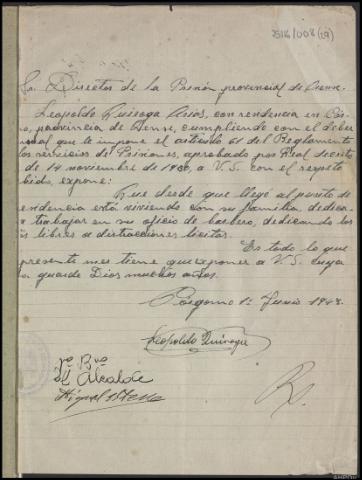 2516/008 (19)
Sr. Director de la Prisión provincial de Orense.
Leopoldo Quiroga Arios, con rendencia en Cós-
o, provincia de Orense, cumpliendo con el deber
nsual que le impone el articulo 61 del Reglamento
los servicios de Prisiones, aprobado por Real decreto
de 14 noviembre de 1930, a V.S. con el respeto
bido, expone:
Que desde que llegó al punto de
endencia está viviendo con su familia, dedica
a trabajar en su oficio de barbero, dedicando los
s libres a distracciones licitas.
Es todo lo que
presente mes tiene que exponer a V.S. cuya
a guarde Dios muchos años.
Cósgomo 1º Junio 1943.
Leopoldo Quiroga
Vº Bº
El Alcalde
Miguel